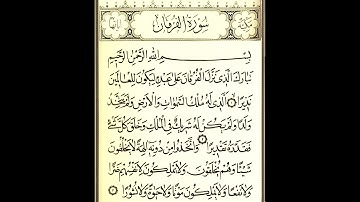 سورة الفرقان
بسم الله الرحمن الرحيم
تبارك الذي نزل الفرقان على عبده ليكون للعالمين
نذيرا ۝ الذي له ملك السموات والأرض ولم يتخذ
ولدا ولم يكن له شريك في الملك وخلق كل شيء
فقدره تقديرا ۝ واتخذوا من دونه آلهة لا يخلقون
شيئا وهم يخلقون ولا يملكون لأنفسهم ضرا
ولا نفعا ولا يملكون موتا ولا حيوة ولا نشورا ۝